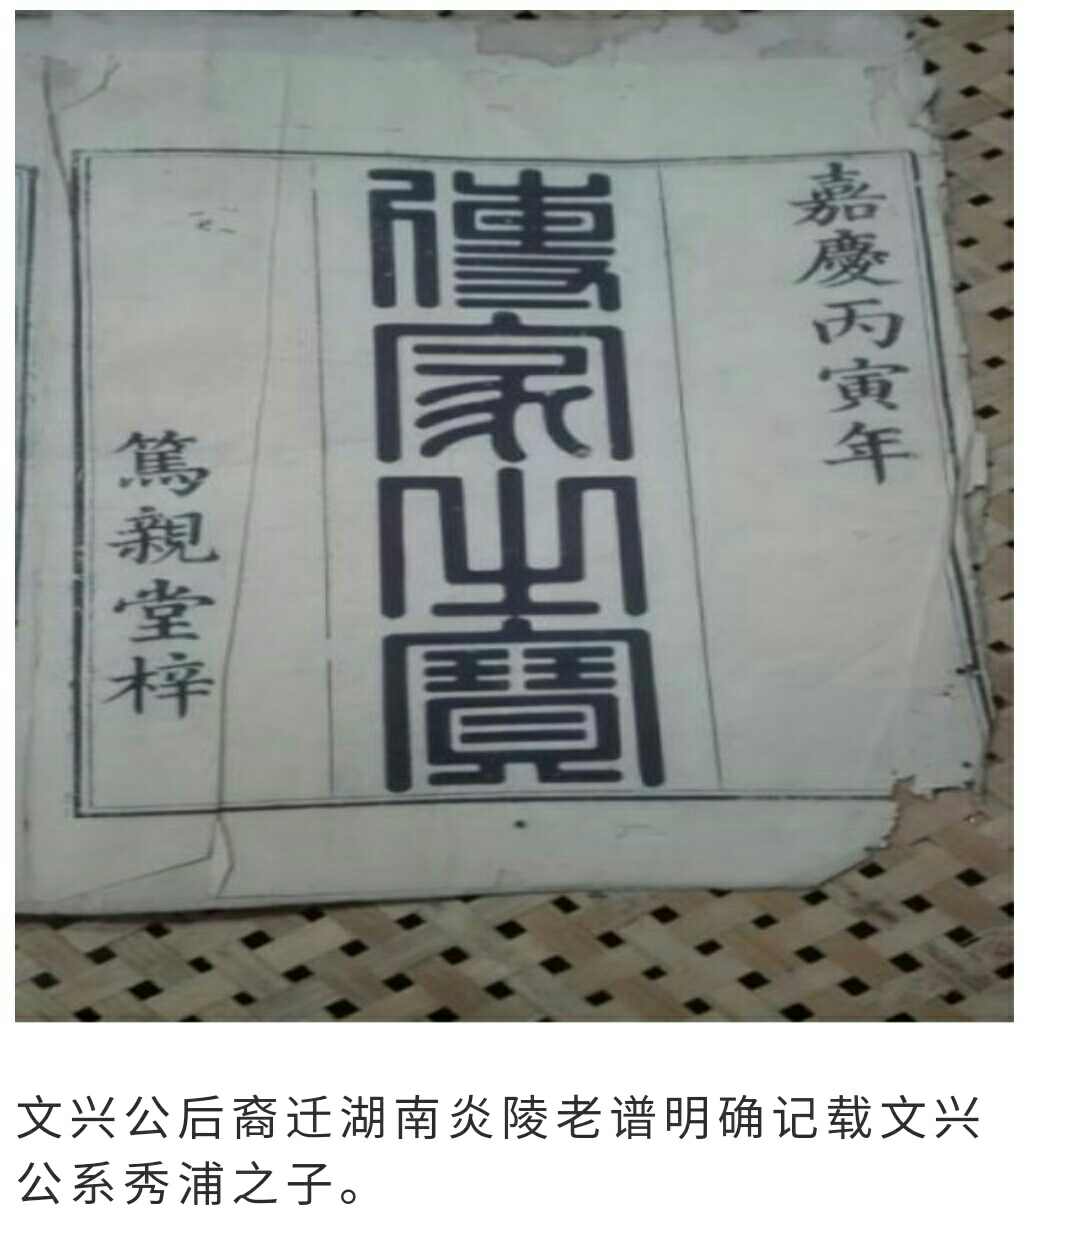 嘉慶丙寅年
傳家之寶
篤親堂梓
文兴公后裔迁湖南炎陵老谱明确记载文兴
公系秀浦之子。